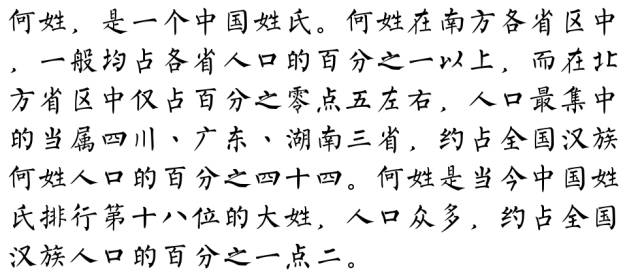 何姓，是一个中国姓氏。何姓在南方各省区中
，一般均占各省人口的百分之一以上，而在北
方省区中仅占百分之零点五左右，人口最集中
的当属四川、广东、湖南三省，约占全国汉族
何姓人口的百分之四十四。何姓是当今中国姓
氏排行第十八位的大姓，人口众多，约占全国
汉族人口的百分之一点二。